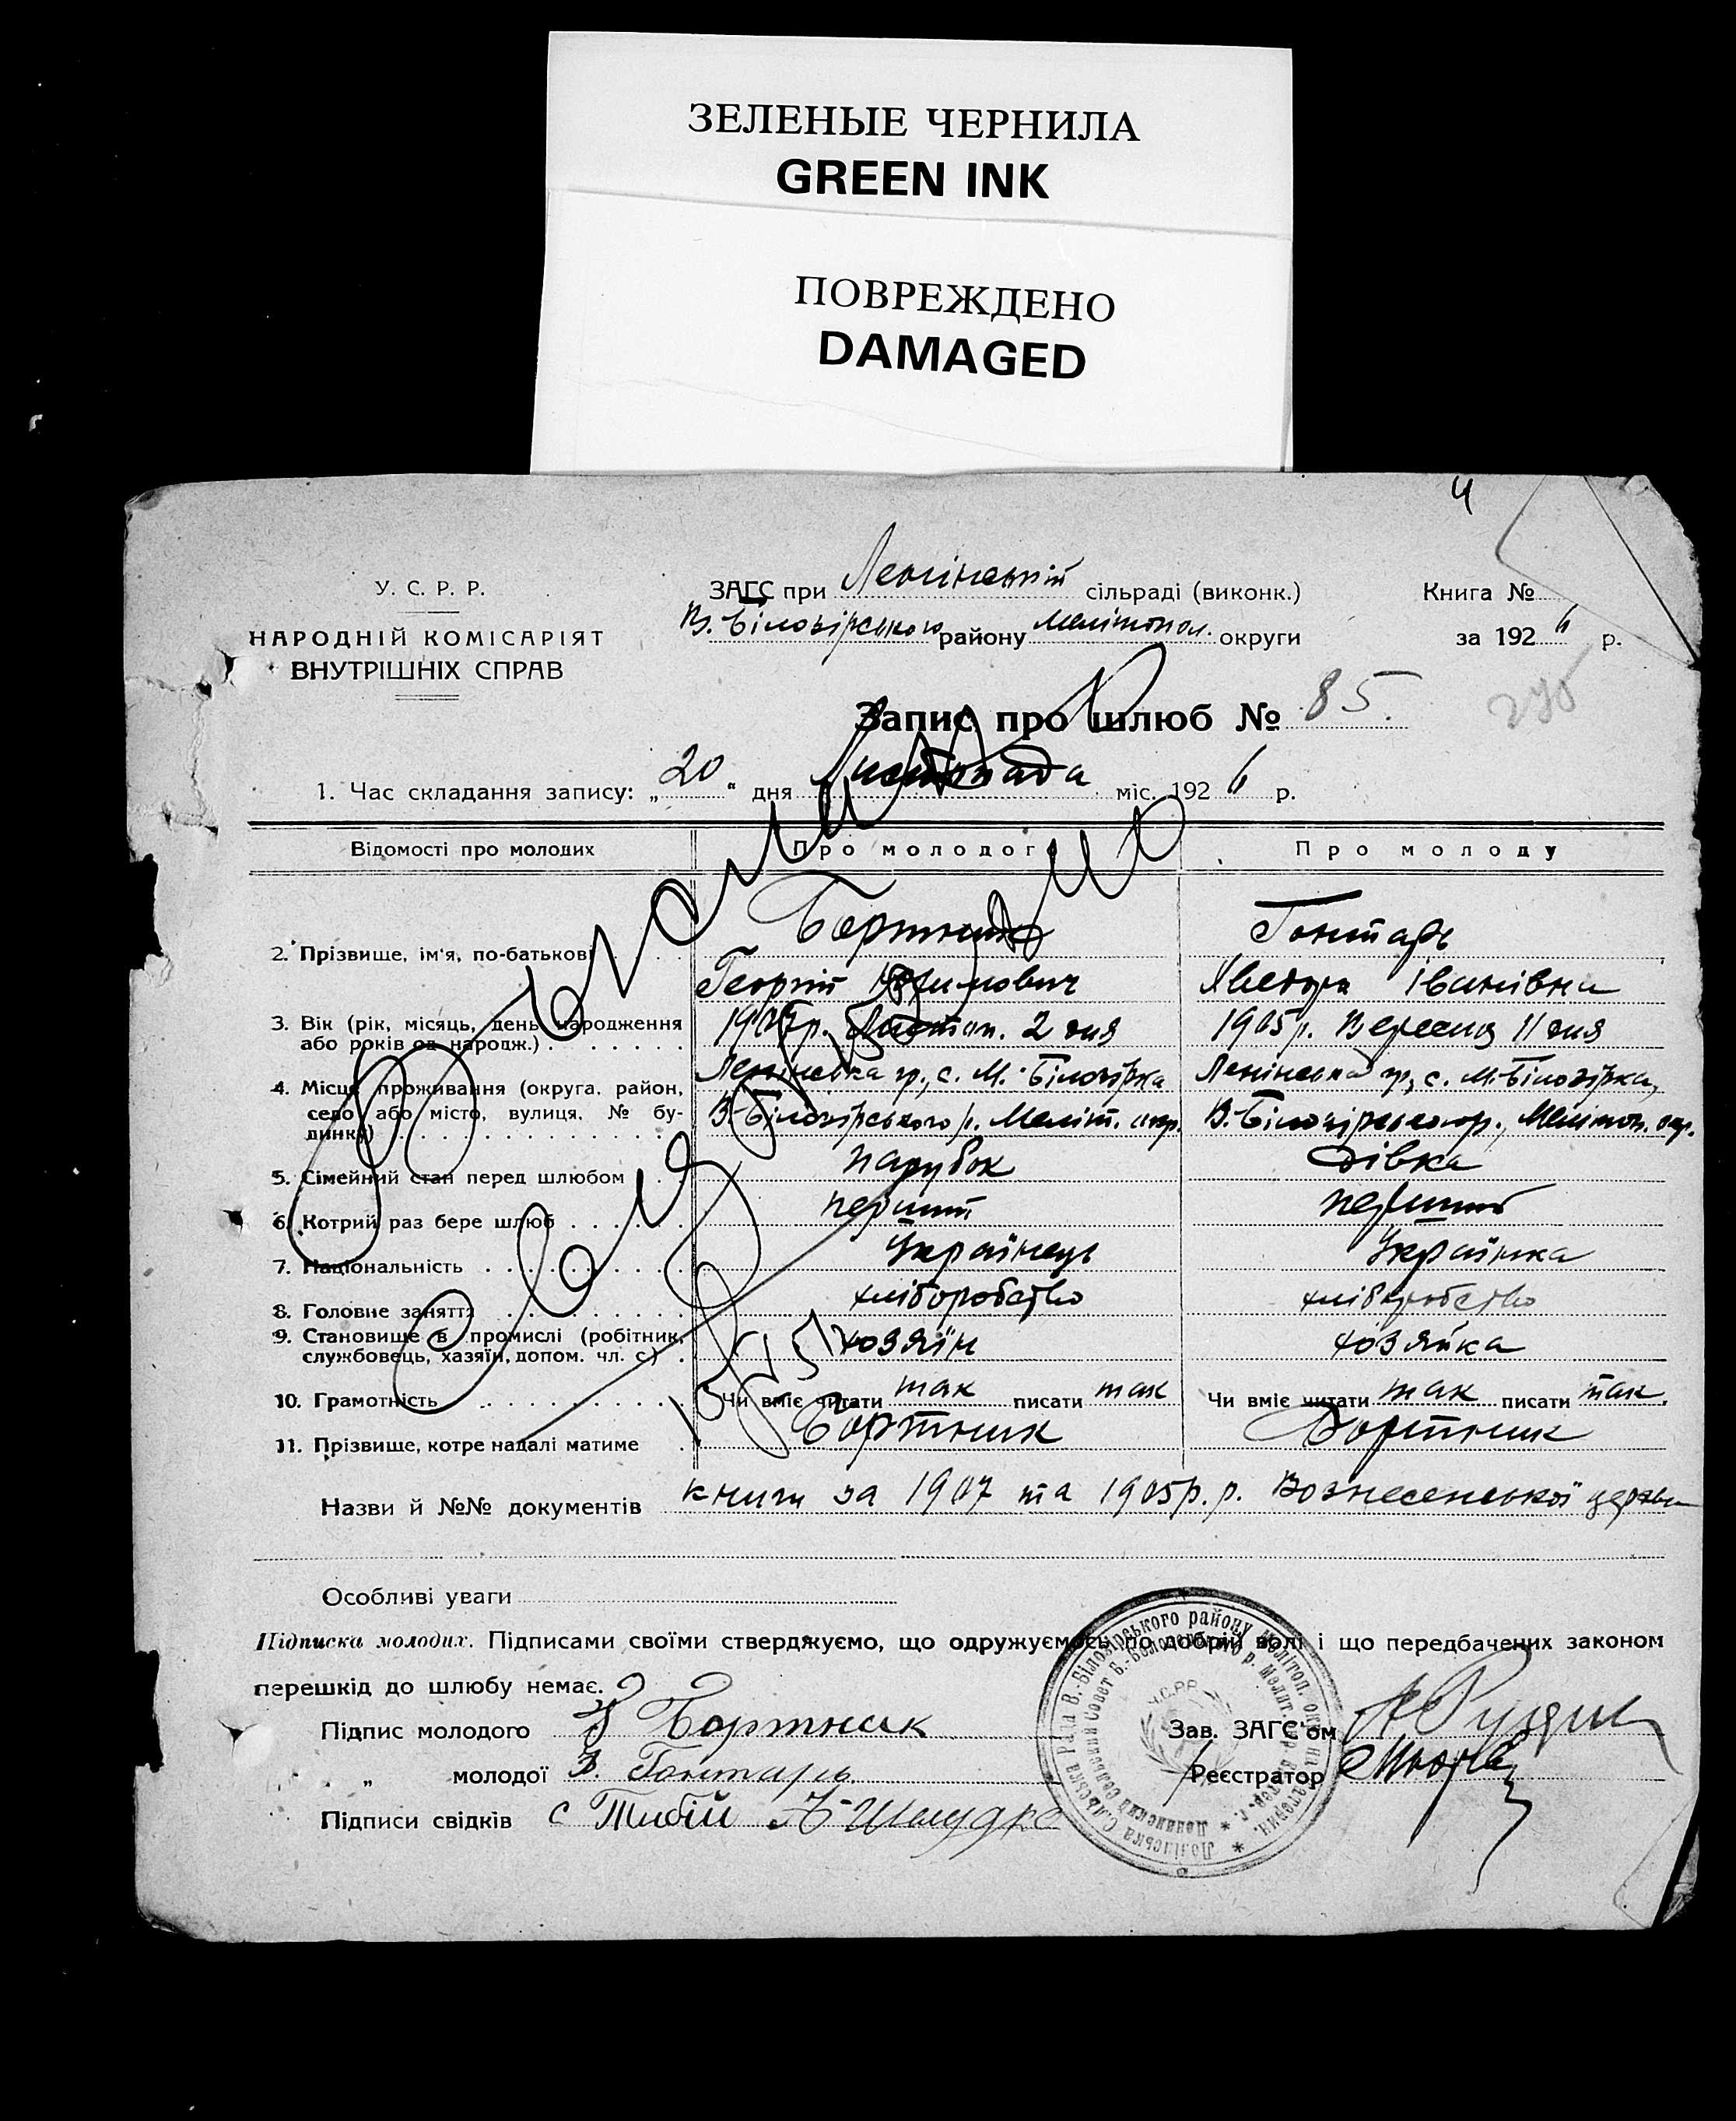 ЗЕЛЕНЫЕ ЧЕРНИЛА
GREEN INK
ПОВРЕЖДЕНО
DAMAGED
У. С. Р. Р.
НАРОДНІЙ КОМІСАРІЯТ
ВНУТРІШНІХ СПРАВ
ЗАГС при Ленінській сільраді (виконк.)
В. Білозірського району Мелітопол. округи
Книга №
за 1926 р.
Запис про шлюб № 85.
1. Час складання запису: „20“ дня Листопада міс. 1926 р.
Відомості про молодих Про молодого Про молоду
2. Прізвище, ім'я, по-батькові Бортник Гонтарь
Георгій Іванівна
3. Вік (рік, місяць, день народження або років од народж.) 1907р. Листоп. 2 дня 1905р. Вересня 11 дня
4. Місце проживання (округа, район, село або місто, вулиця, № будинку) Ленінська гр., с. М. Білозірка Ленінська гр., с. М. Білозірка,
В. Білозірського р. Меліт. окр. В. Білозірського р., Мелітоп. окр.
5. Сімейний стан перед шлюбом парубок дівка
6. Котрий раз бере шлюб перший перший
7. Національність Українець Українка
8. Головне заняття хліборобство хліборобство
9. Становище в промислі (робітник, службовець, хазяїн, допом. чл. с.) хозяїн хозяйка
10. Грамотність Чи вміє читати так писати так Чи вміє читати так писати так.
11. Прізвище, котре надалі матиме Бортник Бортник
Назви й №№ документів книги за 1907 та 1905р.р. Вознесенської церкви
Особливі уваги
Підписка молодих. Підписами своїми стверджуємо, що одружуємось по добрій волі і що передбачених законом
перешкід до шлюбу немає.
Підпис молодого Бортник Зав. ЗАГС'ом
„ молодої Гонтарь Реєстратор
Підписи свідків